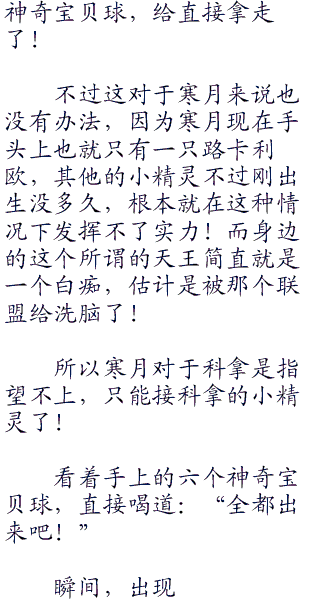 神奇宝贝球，给直接拿走
了！
不过这对于寒月来说也
没有办法，因为寒月现在手
头上也就只有一只路卡利
欧，其他的小精灵不过刚出
生没多久，根本就在这种情
况下发挥不了实力！而身边
的这个所谓的天王简直就是
一个白痴，估计是被那个联
盟给洗脑了！
所以寒月对于科拿是指
望不上，只能接科拿的小精
灵了！
看着手上的六个神奇宝
贝球，直接喝道：“全都出
来吧！”
瞬间，出现